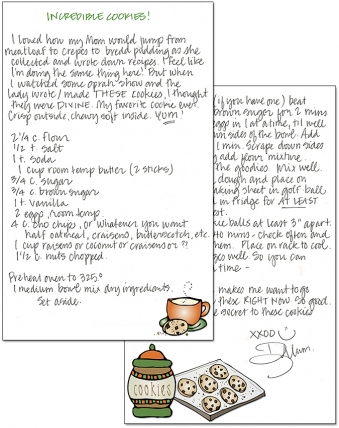 INCREDIBLE COOKIES!
I loved how my Mom would jump from
meatloaf to crepes to bread pudding as she
collected and wrote down recipes. I feel like
I'm doing the same thing here! But when
I watched some oprah show and the
lady wrote / made THESE cookies, I thought
they were DIVINE. My favorite cookie ever.
Crisp outside, chewy soft inside. YUM!
2 1/4 c. flour
1/2 t. salt
1 t. soda
1 cup room temp butter (2 sticks)
3/4 c. sugar
3/4 c. brown sugar
1 t. vanilla
2 eggs, room temp
4 c. cho chips, or whatever you want
half oatmeal, craisens, butterscotch, etc.
1 cup raisens or coconut or craisens or ??
1 1/2 c. nuts chopped.
Preheat oven to 325°
1 medium bowl mix dry ingredients.
Set aside.
(if you have one) beat
brown sugar for 2 mins
eggs in 1 at a time, til well
down sides of the bowl. Add
1 min. Scrape down sides
add flour mixture.
the goodies. Mix well.
dough and place on
baking sheet in golf ball
in fridge for AT LEAST
balls at least 3" apart.
mins - check often and
them. Place on rack to cool.
well. So you can
time -
makes me want to go
these RIGHT NOW so good.
secret to these cookies
XXOO
Mum.
cookies